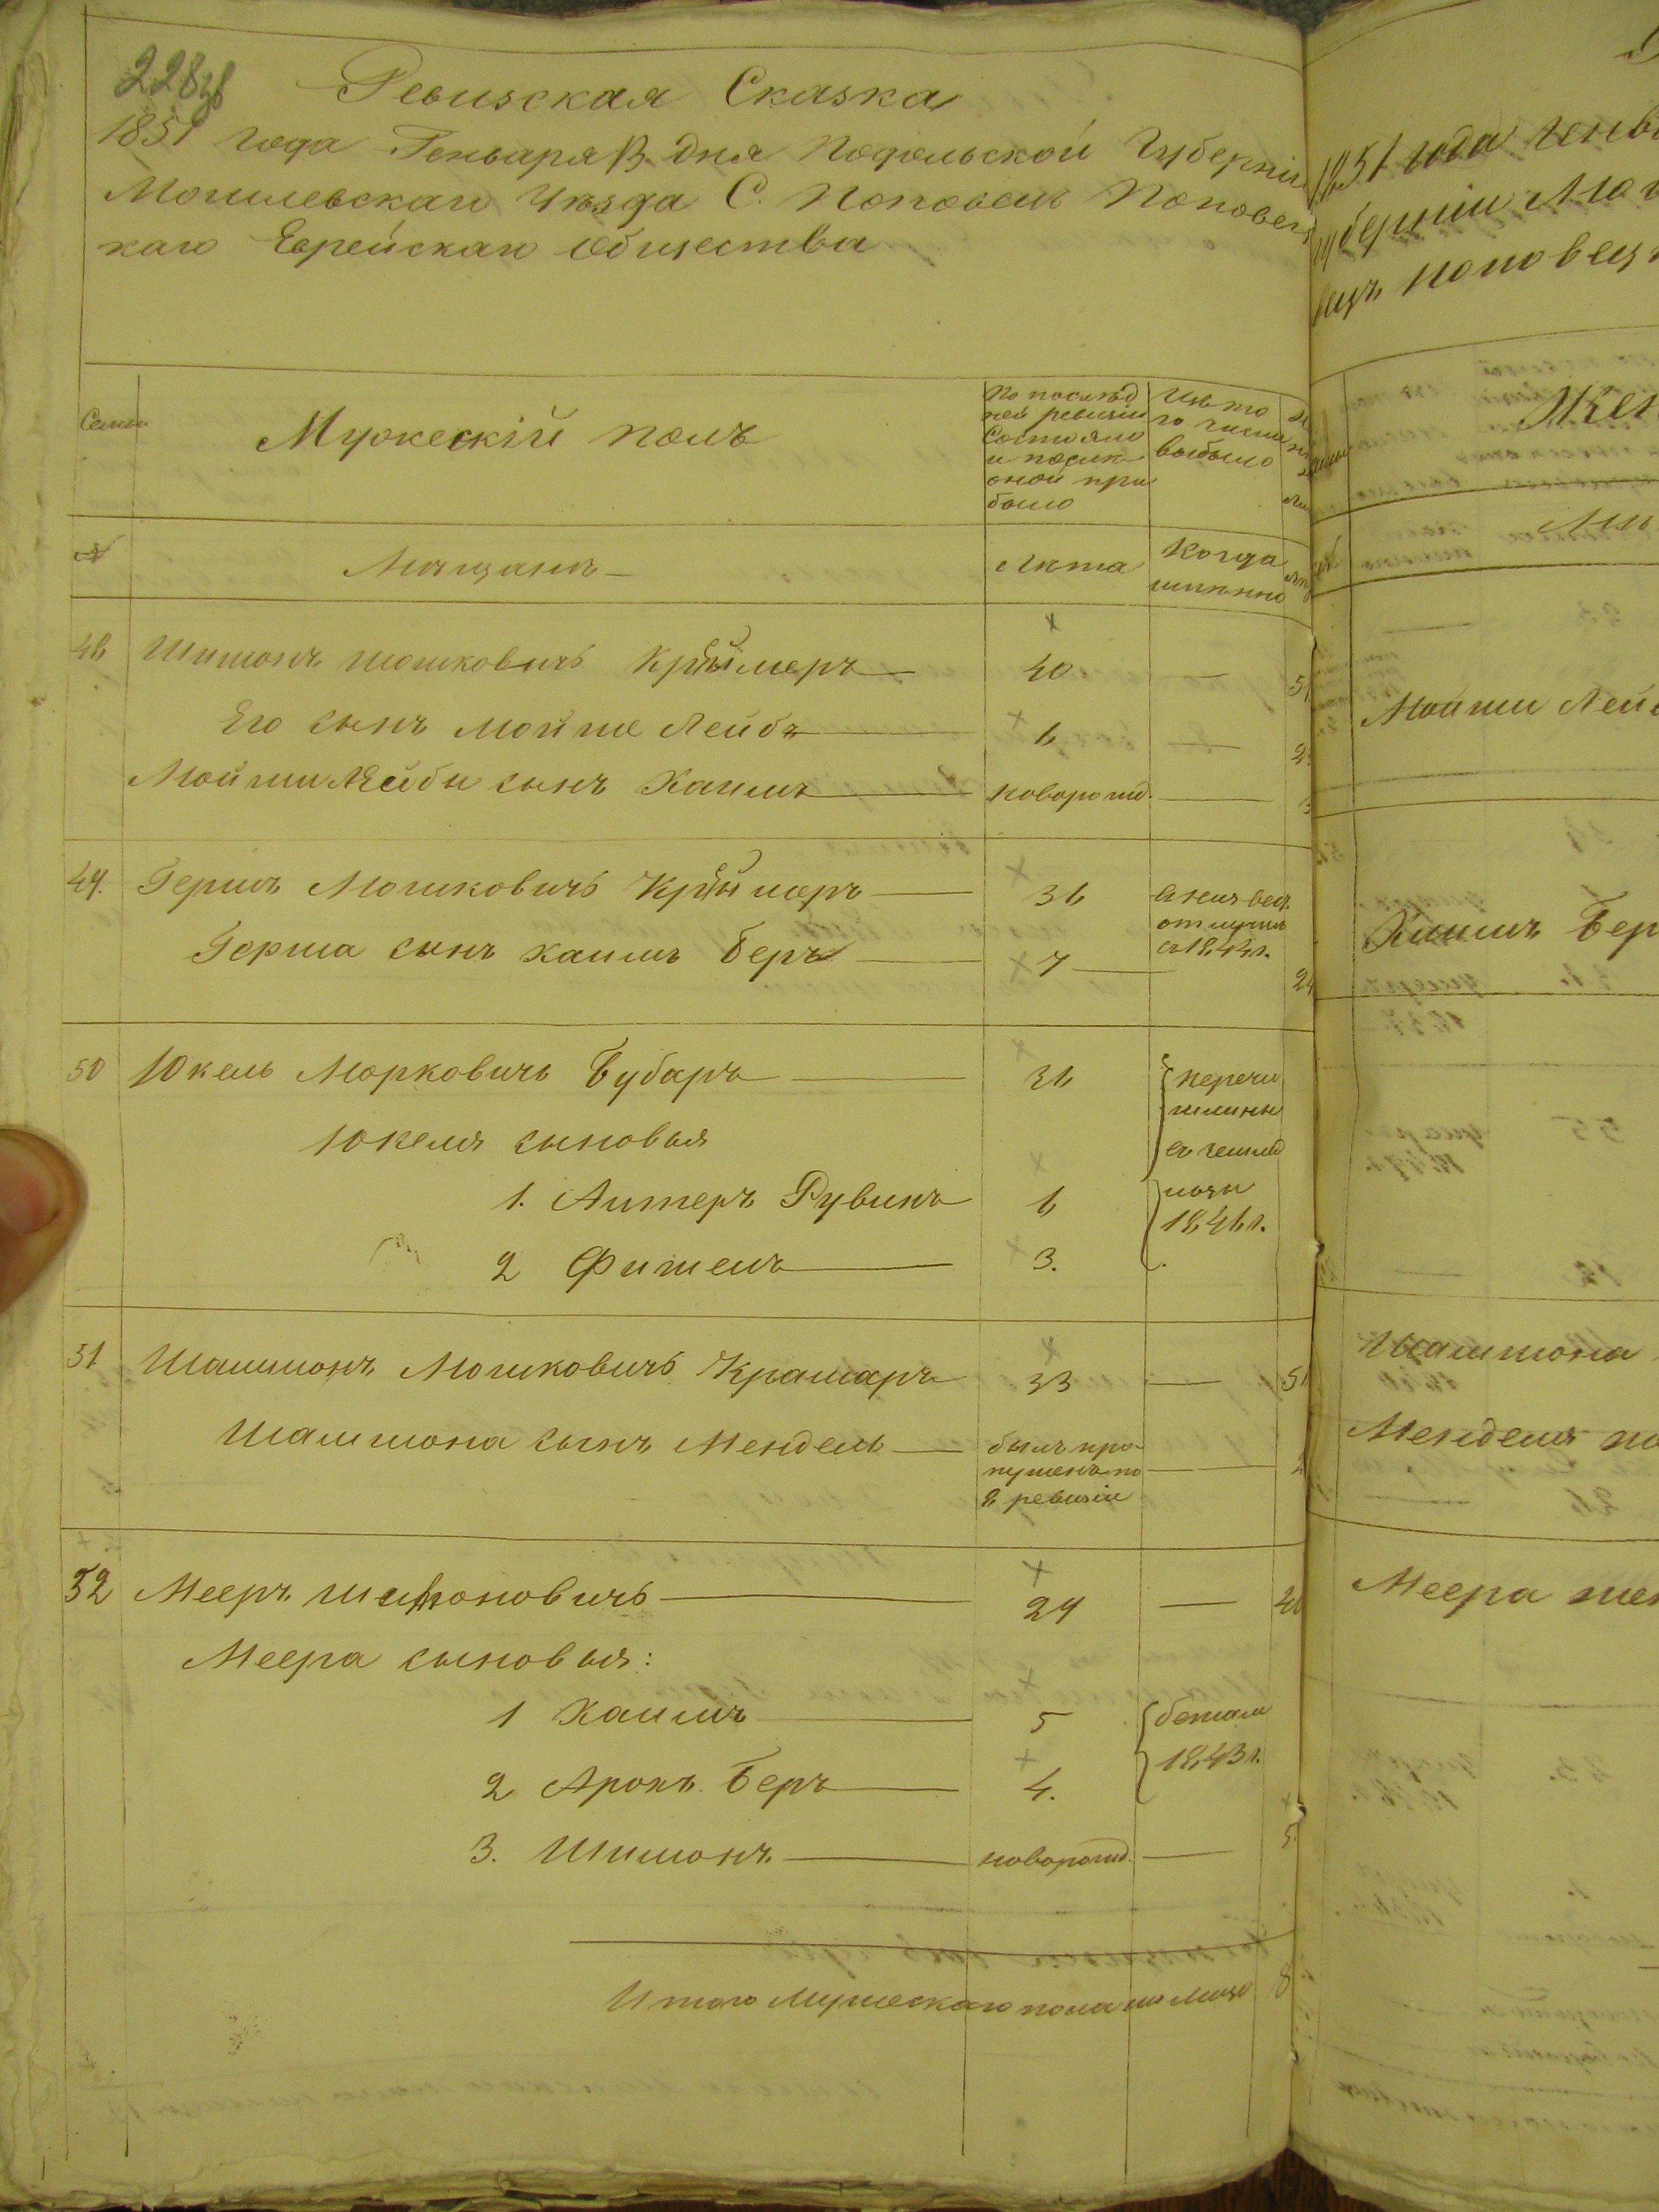 228об
Ревизская Сказка
1851 года Генваря дня Подольской Губерніи
Могилевскаго Уѣзда С. Поповецъ Поповец
каго Еврейскаго Общества
Семьи
Мужескій полъ
По послѣд
ней ревизіи
Состояло
и послѣ
оной при
было
Изъ то
го числа
выбыло
№
Мѣщанъ
Лѣта
Когда
именно
48 Шимонъ Мошковичъ Крымеръ 40 — 51
Его сынъ Мойше Лейбъ 6 —
Мойши Лейбы сынъ Хаимъ новорожд. —
49. Гершъ Мошковичъ Крымеръ 36
въ неизвес.
отлучкѣ
съ 1844 г.
Герша сынъ Хаимъ Беръ 7 — 24
50 Юкель Морковичъ Бубаръ 36
перечи
слины
въ землед
1846 г.
Юкеля сыновья
1. Алтеръ Рувинъ 6
2 Фишель 3.
51 Шашмонъ Мошковичъ Крамаръ 33 — 51
Шашмона сынъ Мендель
былъ про
пущенъ по
8 ревизіи
—
52 Мееръ Шимоновичъ 29 —
Меера сыновья:
1 Хаимъ 5
бежали
1843 г.
2 Аронъ Беръ 4.
3. Шимонъ новорожд. — 5
Итого мужескаго пола на лицо 8
1851 года Генв
губерніи Мог
Поповец
Жен
Мойши Лейб
Хаимъ Бер
Шашмона
Менделя
Меера жен